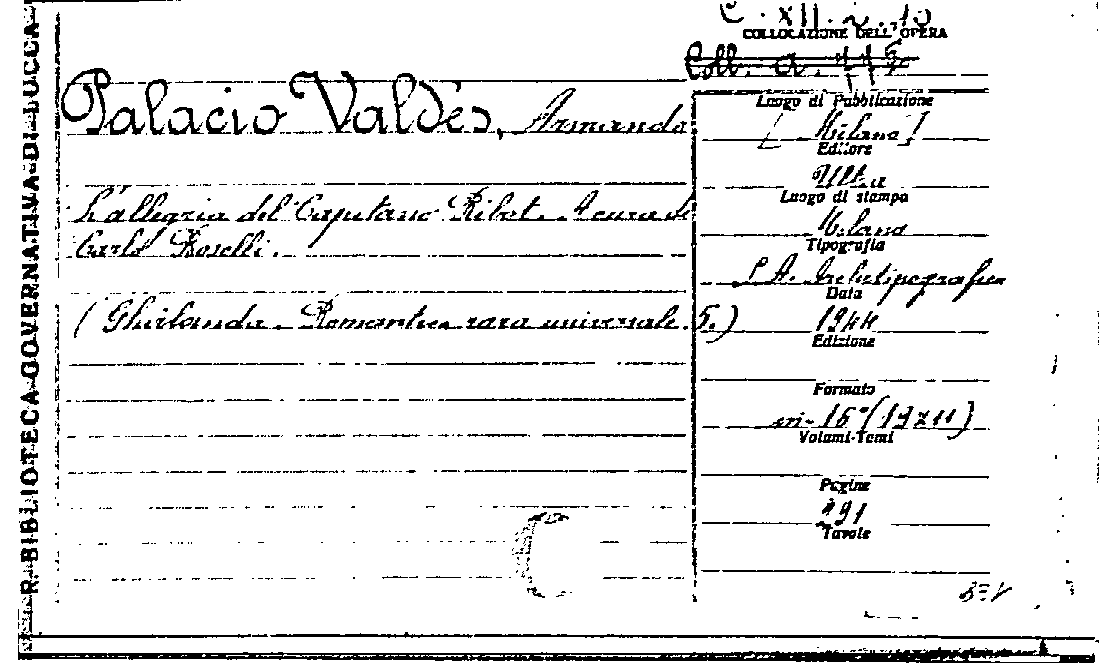 R. BIBLIOTECA GOVERNATIVA DI LUCCA
C. XII. 2. 10
COLLOCAZIONE DELL'OPERA
Coll. a. 775
Palacio Valdés, Armando
L'allegria del Capitano Ribot. A cura di
Carlo Boselli.
(Ghirlanda. Romantica rara universale. 5.)
Luogo di Pubblicazione
[Milano]
Editore
Ultra
Luogo di stampa
Milano
Tipografia
S. A. Archetipografica
Data
1944
Edizione
Formato
in-16° (19x11)
Volumi-Tomi
Pagine
291
Tavole